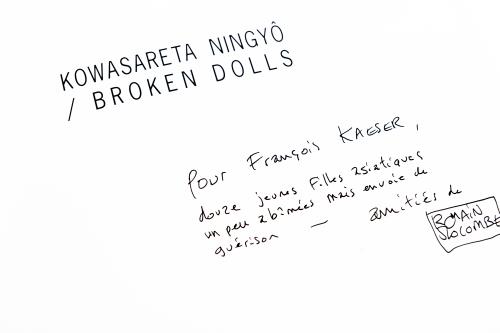 KOWASARETA NINGYÔ
/ BROKEN DOLLS
Pour François KAESER,
douze jeunes filles asiatiques
un peu abîmées mais envoie de
guérison — amitiés de
ROMAIN
SLOCOMBE